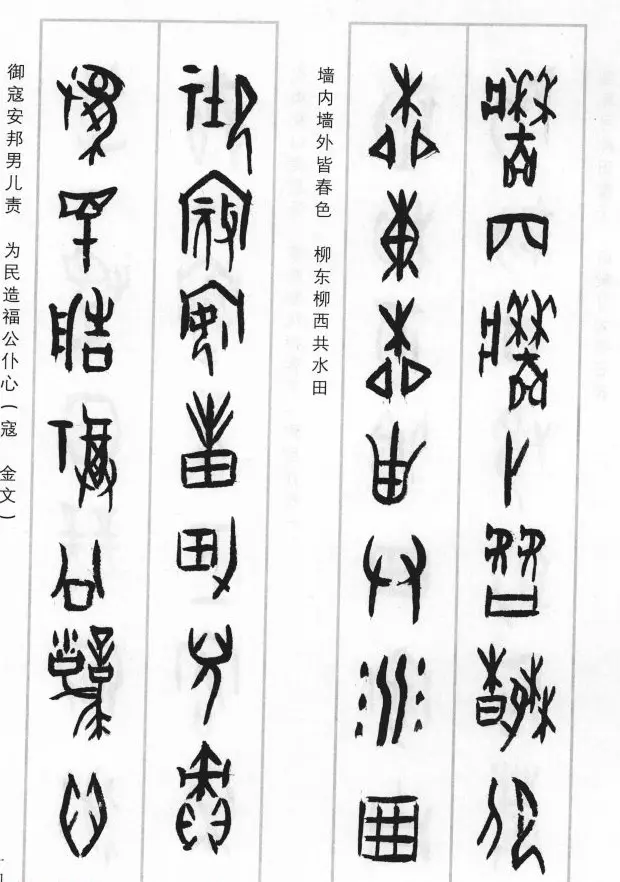 墙内墙外皆春色
柳东柳西共水田
御寇安邦男儿责
为民造福公仆心(寇 金文)